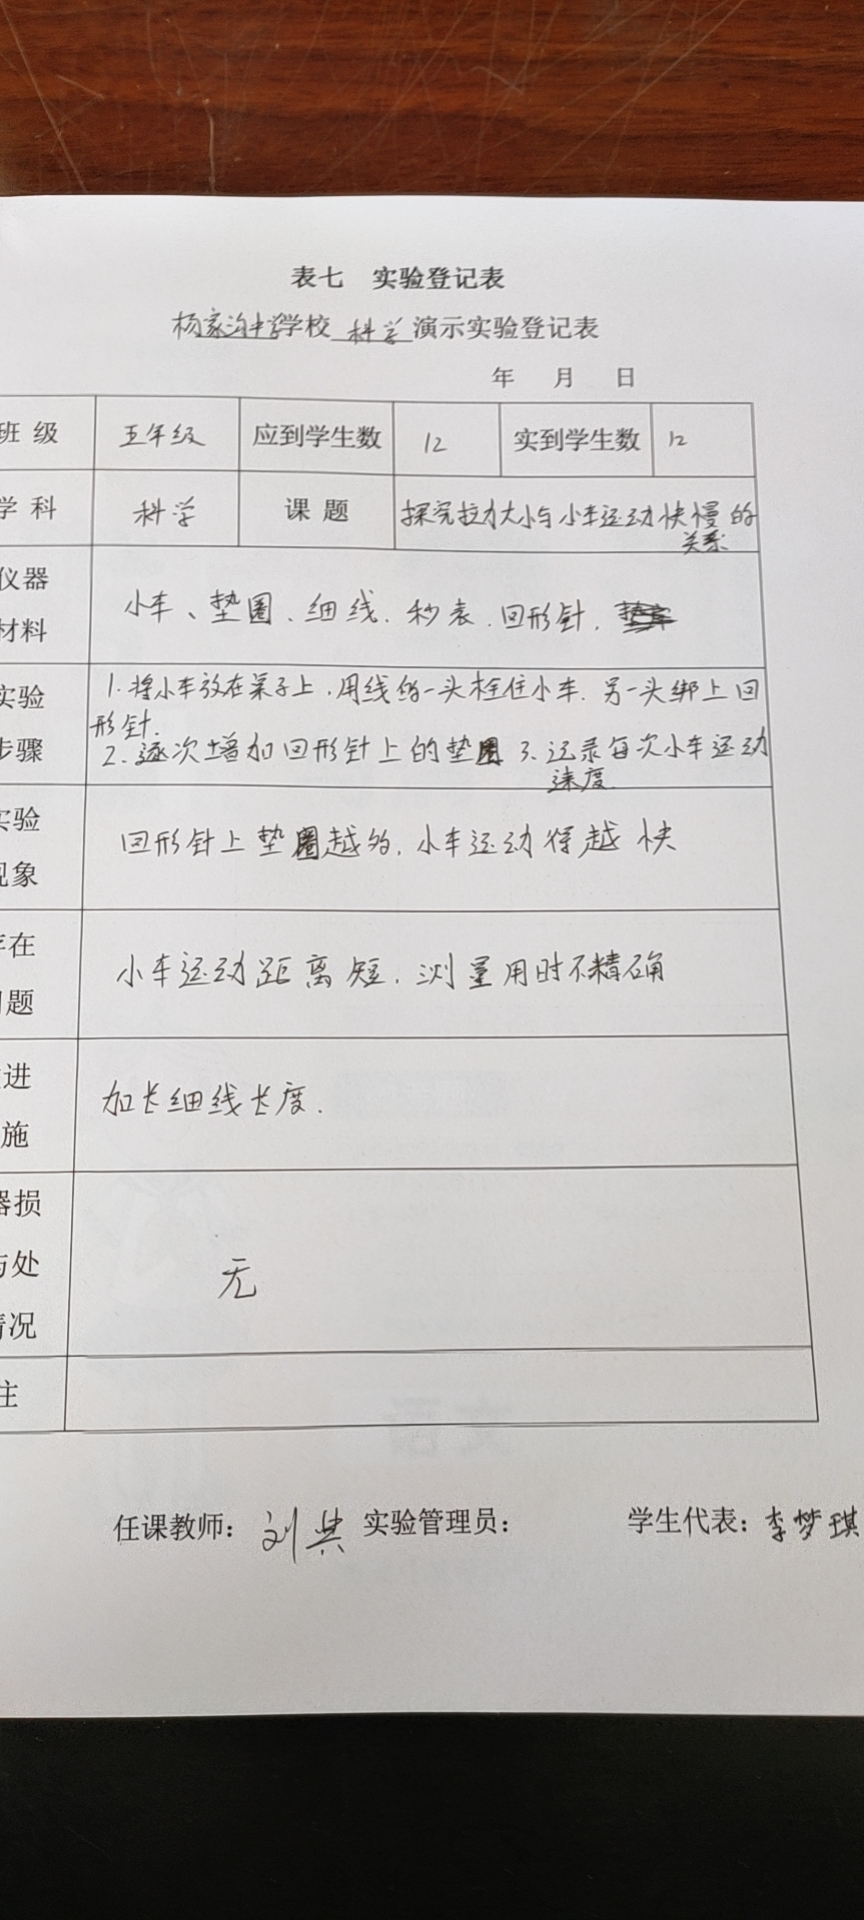 表七 实验登记表
杨家沟中学学校 科学 演示实验登记表
年 月 日
班 级 五年级 应到学生数 12 实到学生数 12
学 科 科学 课 题 探究拉力大小与小车运动快慢的
关系
仪器
材料
小车、垫圈、细线、秒表、回形针、
实验
步骤
1.将小车放在桌子上,用线的一头栓住小车.另一头绑上回
形针.
2.逐次增加回形针上的垫圈 3.记录每次小车运动
速度.
实验
现象
回形针上垫圈越多,小车运动得越快
存在
问题
小车运动距离短,测量用时不精确
进
施
加长细线长度.
器损
与处
情况
无
注
任课教师: 刘 实验管理员: 学生代表: 李梦琪